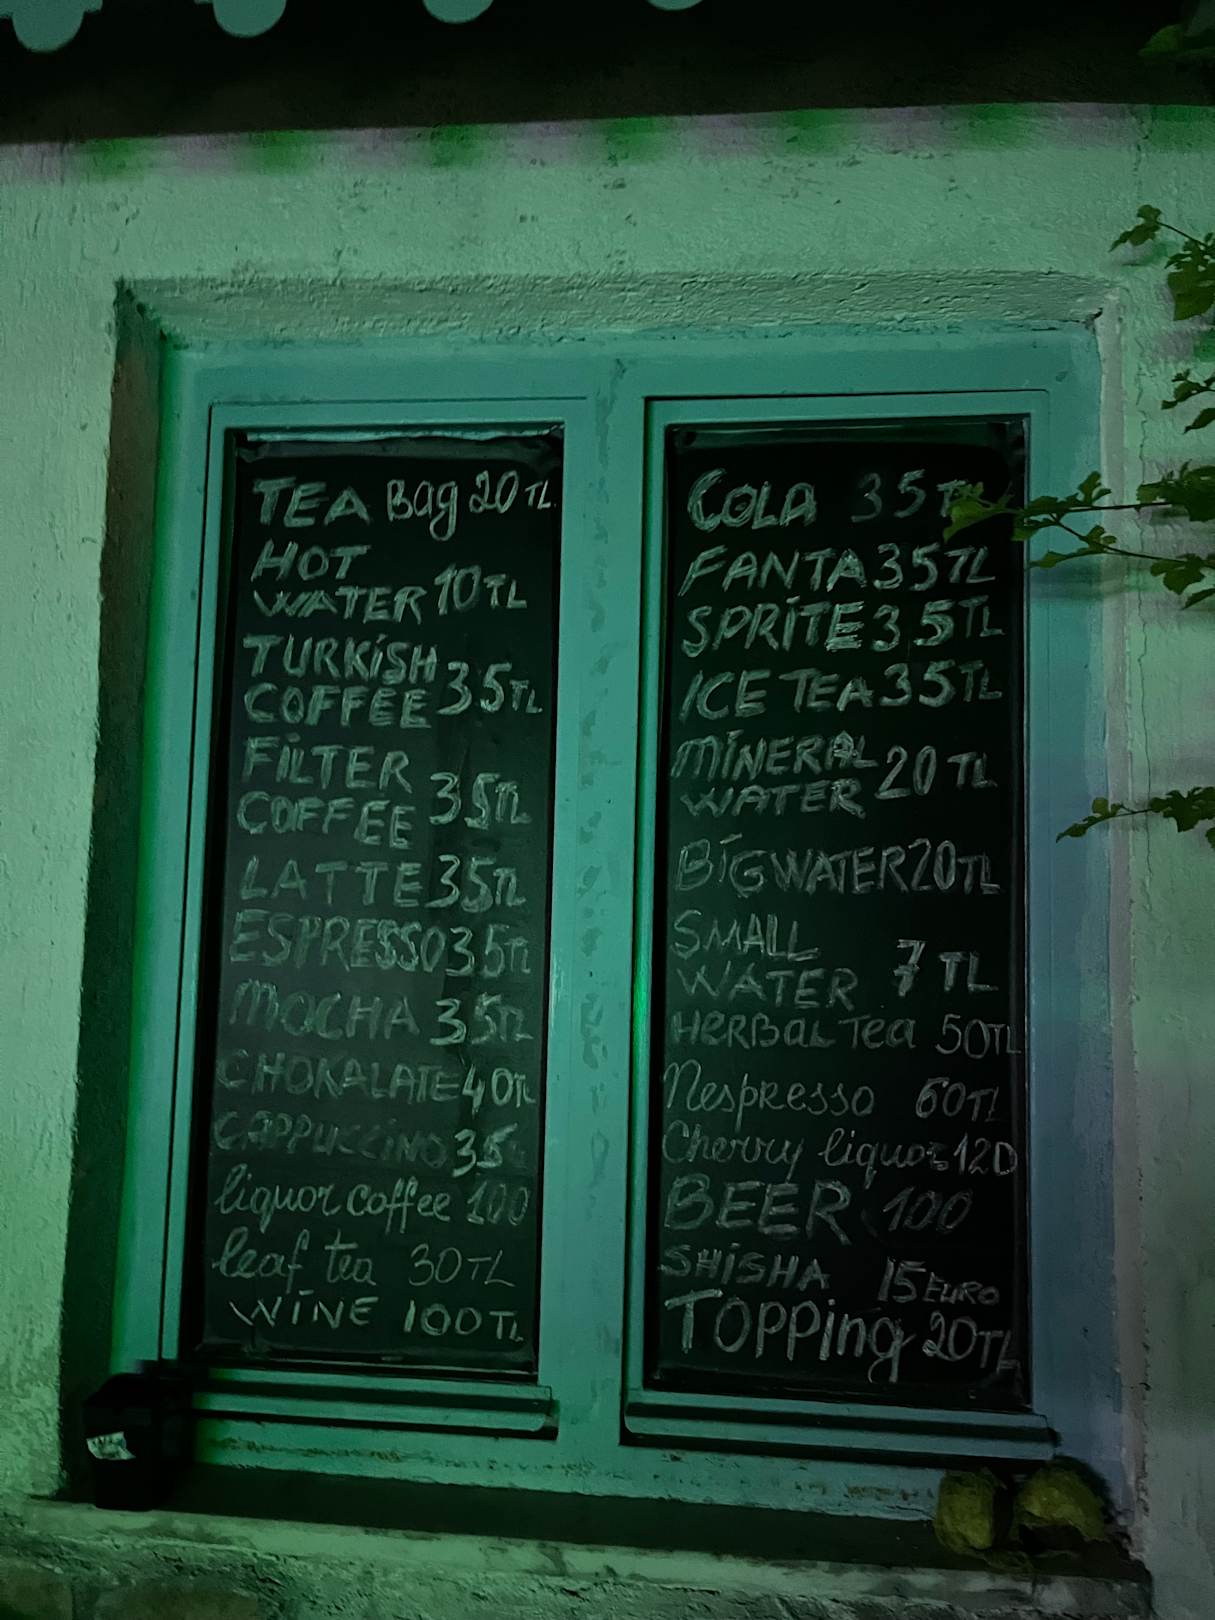 TEA Bag 20 TL
HOT
WATER 10 TL
TURKiSH
COFFEE 35 TL
FiLTER
COFFEE 35 TL
LATTE 35 TL
ESPRESSO 35 TL
MOCHA 35 TL
CHOKALATE 40 TL
CAPPUCCINO 35
liquor coffee 100
leaf tea 30 TL
WiNE 100 TL
COLA 35 TL
FANTA 35 TL
SPRiTE 35 TL
ICE TEA 35 TL
MiNERAL
WATER 20 TL
BiG WATER 20 TL
SMALL
WATER 7 TL
HERBal Tea 50 TL
Nespresso 60 TL
Cherry liquor 120
BEER 100
SHiSHA 15 EURO
TOPPing 20 TL